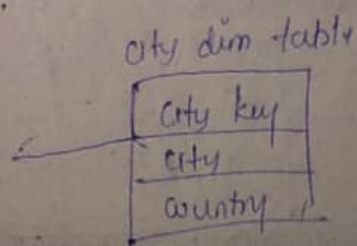 city dim table
city key
city
country